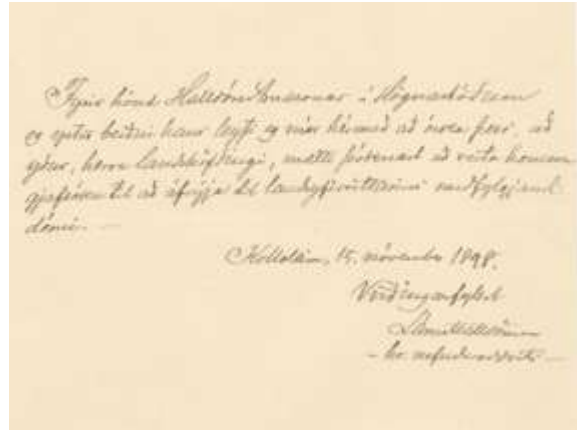 Fyrir hönd Halldórs Runssonar í
og eptir beiðni hans leyfi eg mér hérmeð að óska þess, að
yður, herra landshöfðingi, mætti þóknast að veita honum
gjafsókn til að áfrýja til landsyfirréttarins meðfylgjandi
dómi. —
15. nóvember 1898.
Virðingarfyllst